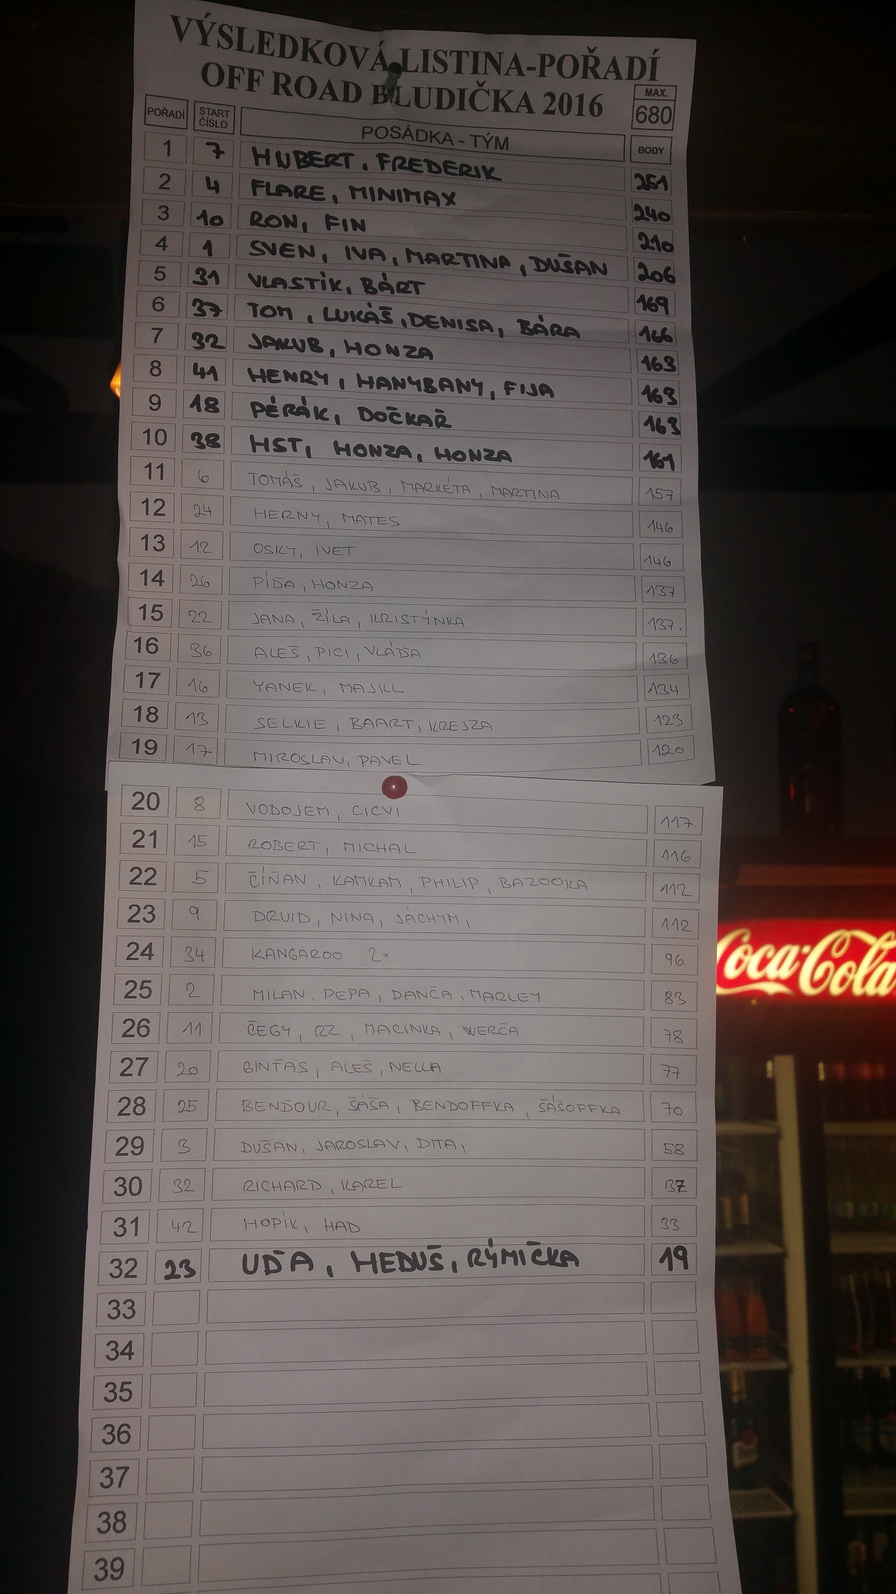 VÝSLEDKOVÁ LISTINA-POŘADÍ
OFF ROAD BLUDIČKA 2016
MAX.
680
POŘADÍ START ČÍSLO POSÁDKA - TÝM BODY
1 7 HUBERT, FREDERIK 251
2 4 FLARE, MINIMAX 240
3 10 RON, FIN 210
4 1 SVEN, IVA, MARTINA, DUŠAN 206
5 31 VLASTÍK, BÁRT 169
6 37 TOM, LUKÁŠ, DENISA, BÁRA 166
7 32 JAKUB, HONZA 163
8 41 HENRY, HANYBANY, FIJA 163
9 18 PÉRÁK, DOČKAŘ 163
10 38 HST, HONZA, HONZA 161
11 6 TOMÁŠ, JAKUB, MARKÉTA, MARTINA 157
12 24 HERNY, MATES 146
13 12 OSKY, IVET 146
14 26 PÍĎA, HONZA 137
15 22 JANA, ŽÍLA, KRISTÝNKA 137.
16 36 ALEŠ, PICI, VLÁĎA 136
17 16 YANEK, MAJKL 134
18 13 SELKIE, BAART, KREJZA 123
19 17 MIROSLAV, PAVEL 120
20 8 VODOJEM, CICVI 117
21 15 ROBERT, MICHAL 116
22 5 ČÍŇAN, KAMKAM, PHILIP, BAZOOKA 112
23 9 DRUID, NINA, JÁCHYM, 112
24 34 KANGAROO 2x 96
25 2 MILAN, PEPA, DANČA, MARLEY 83
26 11 ČEGY, RZ, MACINKA, WERČA 78
27 20 GINŤAS, ALEŠ, NELLA 77
28 25 BENĎOUR, ŠÁŠA, BENDOFFKA, ŠÁŠOFFKA 70
29 3 DUŠAN, JAROSLAV, DITA, 58
30 32 RICHARD, KAREL 37
31 42 HOPÍK, HAD 33
32 23 UĎA, HEDUŠ, RÝMIČKA 19
33
34
35
36
37
38
39
Coca-Cola